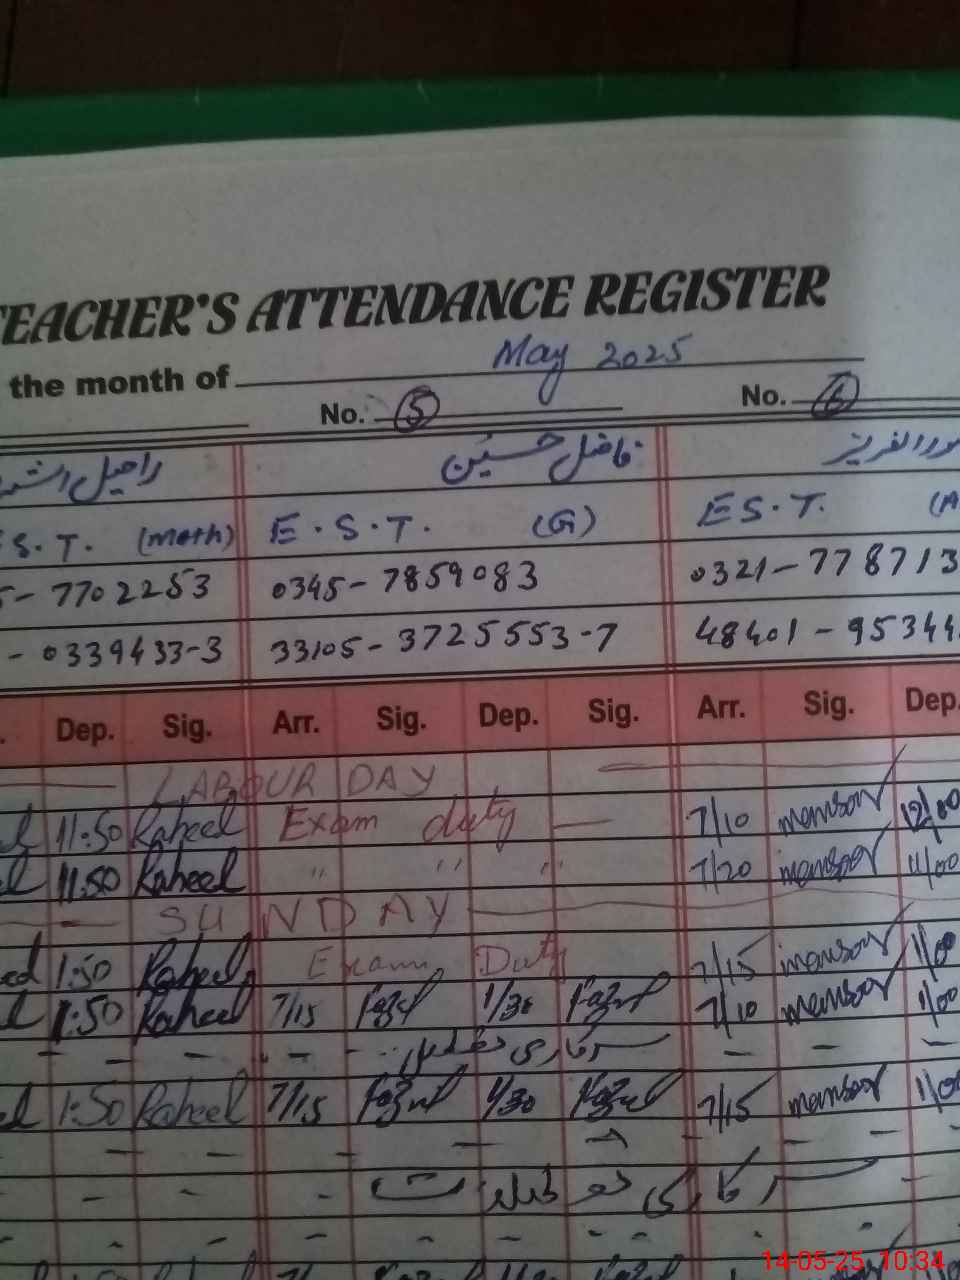 TEACHER'S ATTENDANCE REGISTER
the month of May 2025
No. 5 No. 6
راحیل فاضل حسین
S.T. (Math) E.S.T. (G) E S.T. (A
5-7702253 0345-7859083 0321-778713
-0339433-3 33105-3725553-7 48401-95344
Dep. Sig. Arr. Sig. Dep. Sig. Arr. Sig. Dep.
LABOUR DAY
11:50 Raheel Exam duty 7/10 mansoor 12/00
11:50 Raheel " " " 7/20 mansoor 11/00
SUNDAY
1:50 Raheel Exam Duty 7/15 mansoor 1/00
1:50 Raheel 7/15 Fazul 1/30 Fazul 7/10 mansoor 1/00
سرکاری تعطیل
1:50 Raheel 7/15 Fazul 1/30 Fazul 7/15 mansoor 1/00
سرکاری تعطیلات
14-05-25 10:34